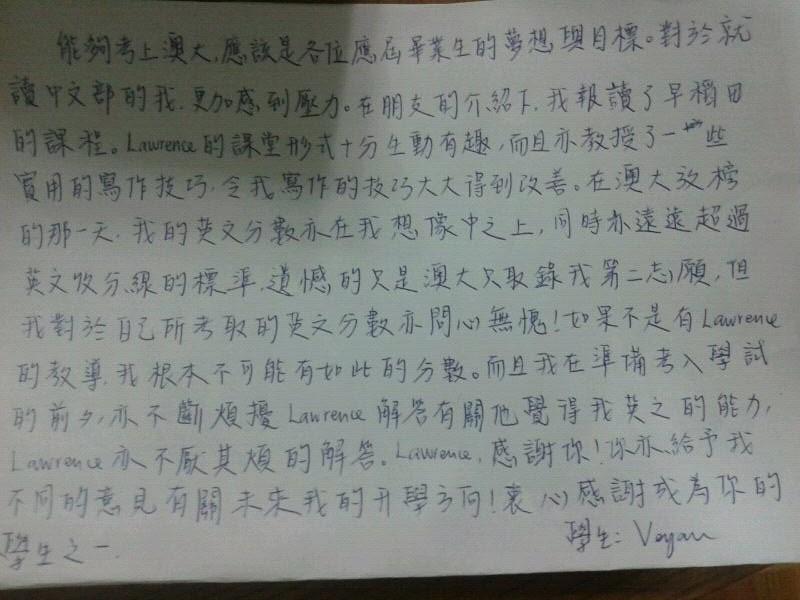 能夠考上澳大,應該是各位應屆畢業生的夢想與目標。對於就
讀中文部的我,更加感到壓力。在朋友的介紹下,我報讀了早稻田
的課程。Lawrence的課堂形式十分生動有趣,而且亦教授了一些
實用的寫作技巧,令我寫作的技巧大大得到改善。在澳大放榜
的那一天,我的英文分數亦在我想像中之上,同時亦遠遠超過
英文收分線的標準,遺憾的只是澳大只取錄我第二志願,但
我對於自己所考取的英文分數亦問心無愧!如果不是有Lawrence
的教導,我根本不可能有如此的分數。而且我在準備考入學試
的前夕,亦不斷煩擾Lawrence解答有關他覺得我英文的能力,
Lawrence亦不厭其煩的解答。Lawrence,感謝你!你亦給予我
不同的意見有關未來我的升學方向!衷心感謝成為你的
學生之一.
學生: